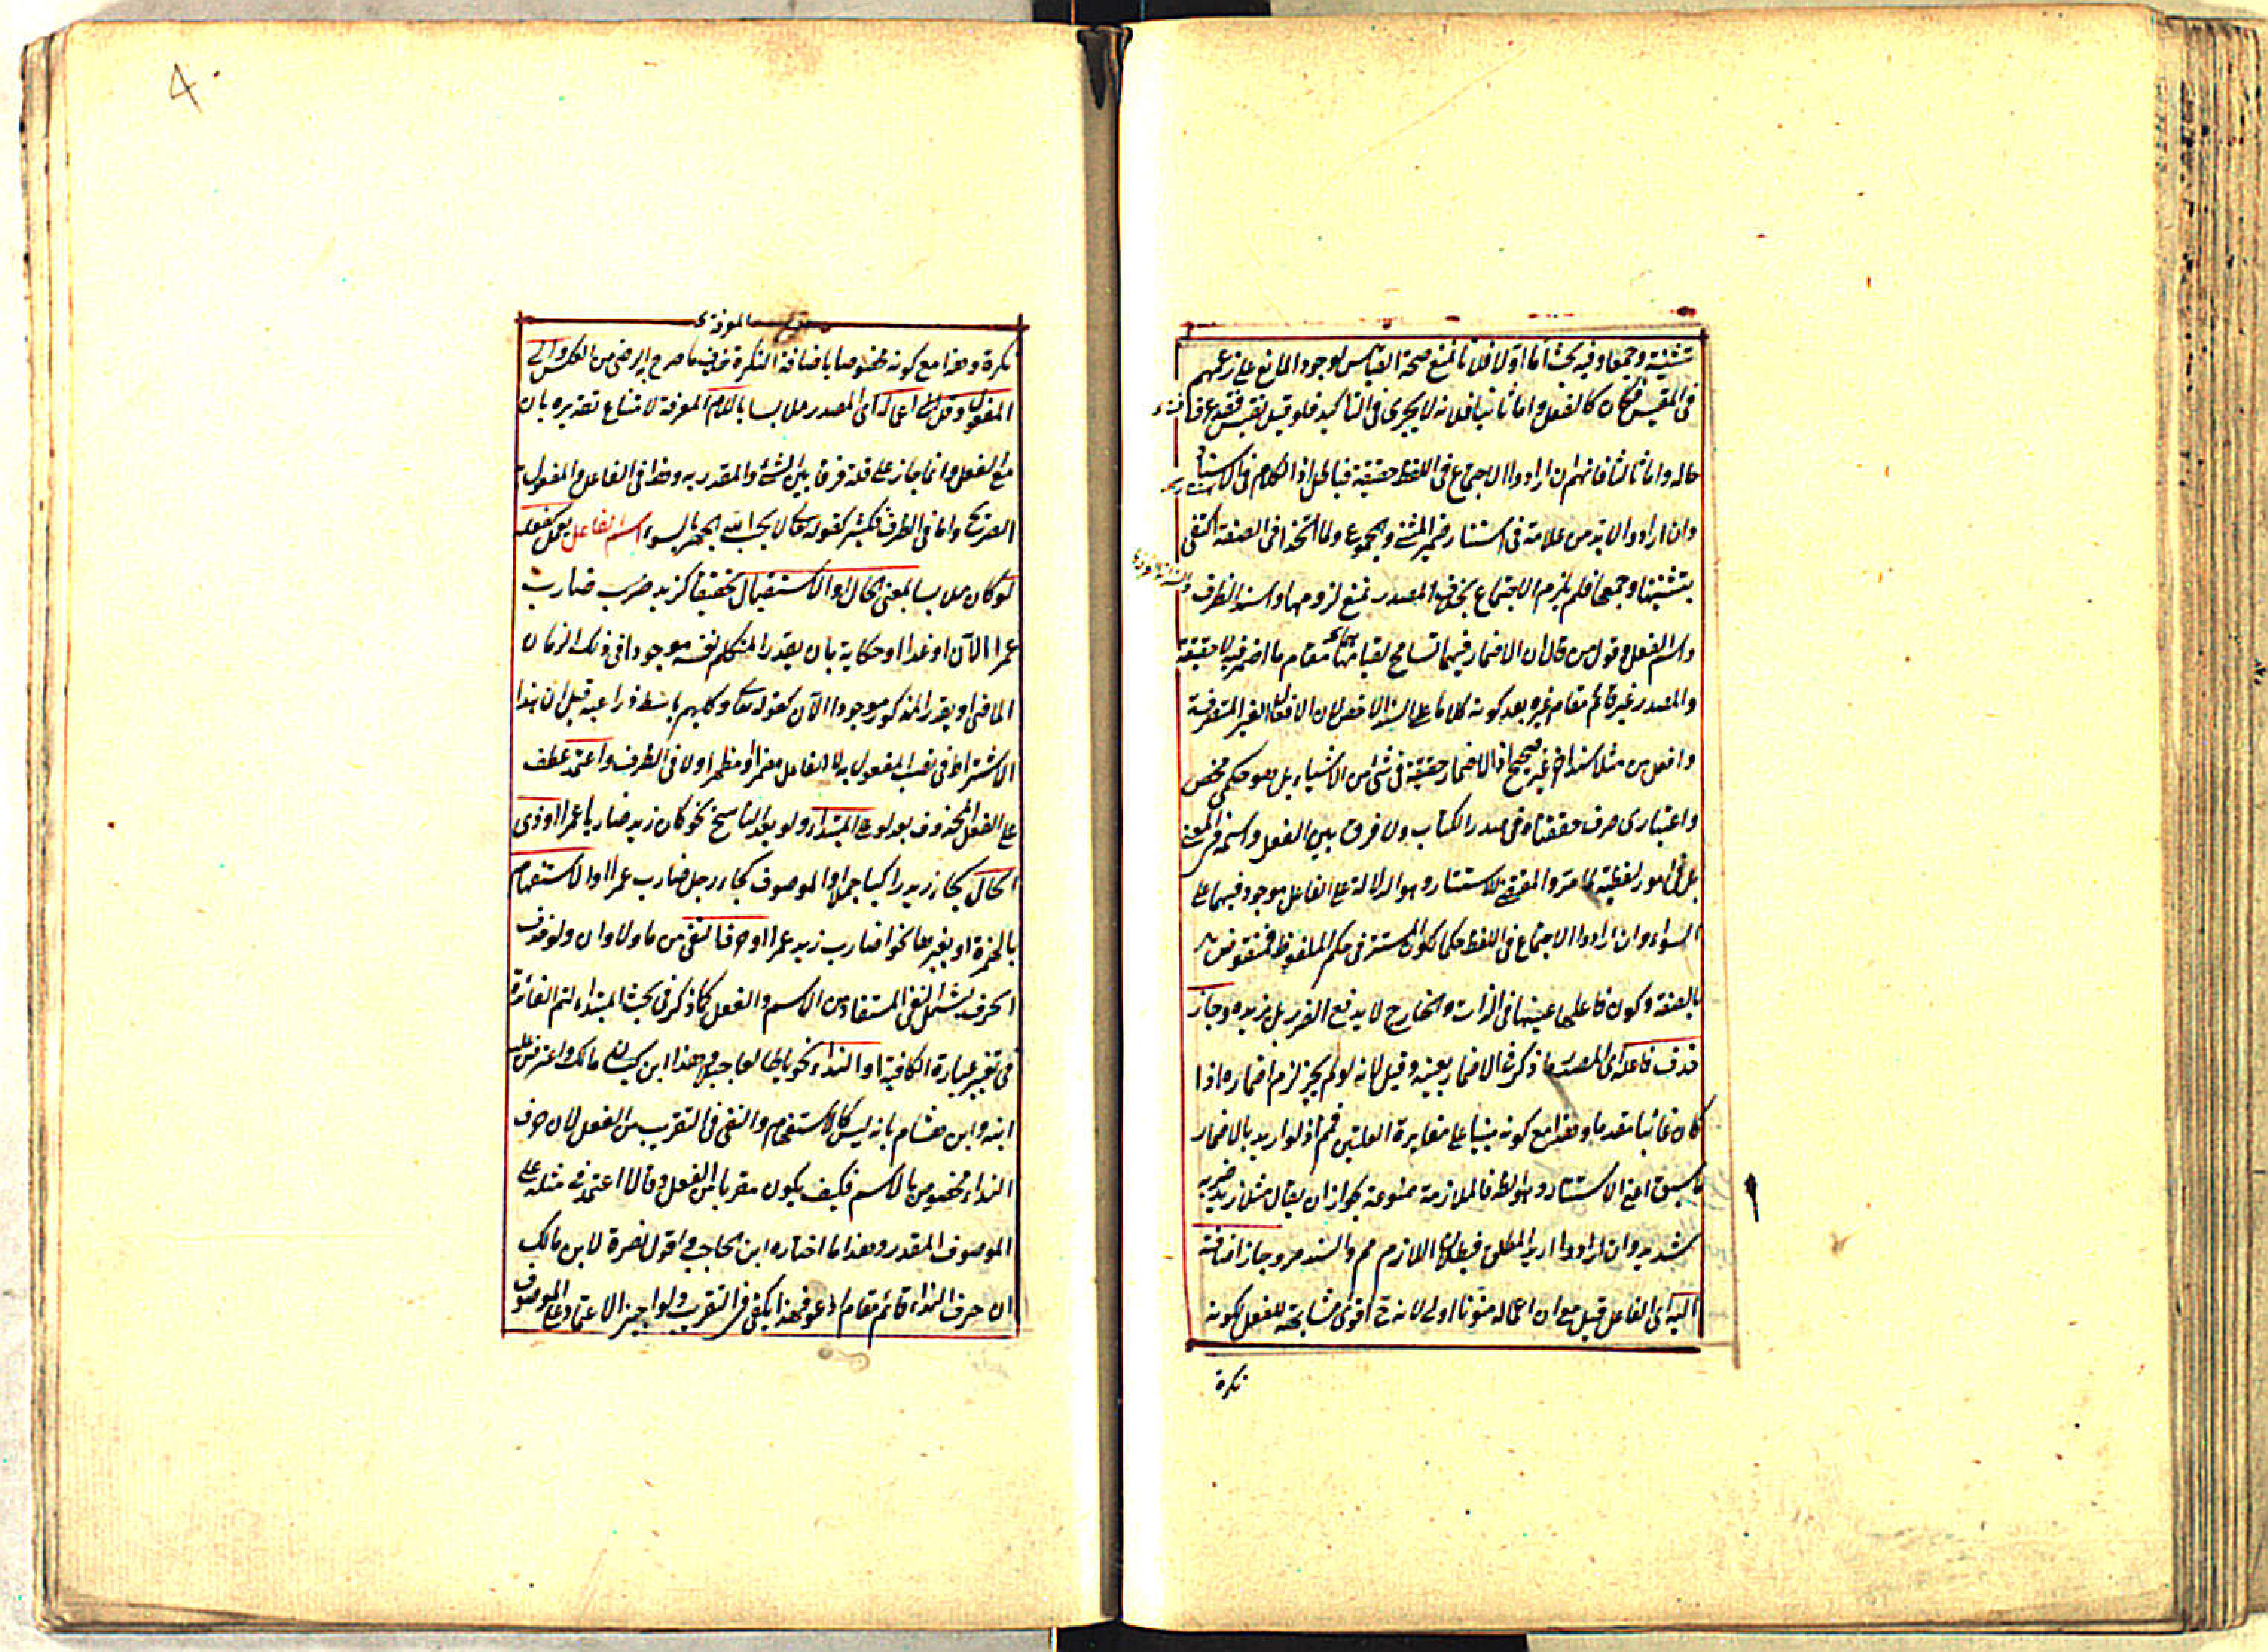 تثنية وجمعا وفيه بحث اما اولا فلانا نمنع صحة القياس لوجود المانع على زعمهم
فى المقيس فكان كالفعل واما ثانيا فلانه لا يجرى فى التاكيد فلو قيل
حاله واما ثالثا فانهم ان ارادوا الاجتماع فى اللفظ حقيقة فباطل اذ الكلام فى الاستتار
وان ارادوا لابد من علامة فى استتار ضمير المثنى والمجموع ولما اتحدا فى الصفة اكتفى
بتثنيتها وجمعها فلم يلزم الاجتماع بخلاف المصدر نمنع لزومها واسند الظرف
واسم الفعل وقول من قال ان الاضمار فيهما تسامح لقيامهما مقام ما اضمر فيه لا حقيقة
والمصدر غير قائم مقام غيره بعد كونه كلاما على السند الاخص لان الافعال الغير المتصرفة
وافعل من مثلا سندا اخر غير صحيح اذ الاضمار حقيقة فى شئ من الاشياء بل هو حكمى محض
واعتبارى صرف حققناه فى صدر الكتاب ولا فرق بين الفعل واسمه فى المعنى
بل فى امور لفظية لما مر والمقتضى للاستتار وهو الدلالة على الفاعل موجود فيهما على
السواء وان ارادوا الاجتماع فى اللفظ حكما لكون المستتر فى حكم الملفوظ فمنقوض
بالصفة وكون فاعلها عينها فى الذات والخارج لا يدفع الضرر بل يزيده وجاز
حذف فاعله اى المصدر ما ذكر فى الاضمار بعينه وقيل لانه لو لم يجز لزم اضماره اذا
كان غائبا مقدما وهذا مع كونه مبنيا على مغايرة العلتين فم اذ لو اريد بالاضمار
ما سبق اعنى الاستتار وهو الظ فالملازمة ممنوعة بجواز ان يقال مثلا زيد ضربه
شديد وان ارادوا اريد المطلق فبطلان اللازم مم والسند مر وجاز اضافته
اليه اى الفاعل قيل مع ان اعماله منونا اولى لانه ح اقوى مشابهة للفعل لكونه
نكرة
نكرة وهذا مع كونه مخصوصا باضافة النكرة ما صرح به الرضى من العكس والى
المفعول وقل اعماله اى المصدر ملابسا باللام المعرفة لامتناع تقديره بان
مع الفعل وانما جاز على قلة فرقا بين الشئ والمقدر به وهذا فى الفاعل والمفعول
الصريح واما فى الظرف فكثير كقوله تعالى لا يحب الله الجهر بالسوء اسم الفاعل يعمل كفعله
لو كان ملابسا بمعنى الحال او الاستقبال تحقيقا كزيد ضرب ضارب
عمرا الآن او غدا او حكاية بان يقدر المتكلم نفسه موجودا فى ذلك الزمان
الماضى او يقدر المذكور موجودا الآن كقوله تعالى وكلبهم باسط ذراعيه قيل ان هذا
الاشتراط فى نصب المفعول به لا الفاعل مضمرا او مظهرا ولا فى الظرف واعتمد عطف
على الفعل المحذوف بعد لو على المبتداء ولو بعد الناسخ نحو كان زيد ضاربا عمرا او ذى
الحال كجاء زيد راكبا جملا او الموصوف كجاء رجل ضارب عمرا او الاستفهام
بالهمزة او بغيرها نحو اضارب زيد عمرا او حرف النفى من ما ولا وان ولو حذف
الحرف ليشمل النفى المستفاد من الاسم والفعل كما ذكر فى بحث المبتداء لتم الفائدة
فى تغيير عبارة الكافية او النداء نحو يا طالعا جبلا وهذا ابن مالك واعترض عليه
ابنه وابن هشام بانه ليس كالاستفهام والنفى فى التقريب من الفعل لان حرف
النداء مخصوص بالاسم فكيف يكون مقربا من الفعل وقالا اعتمد فى مثله على
الموصوف المقدر وهذا ما اختاره ابن الحاجب واقول نصرة لابن مالك
ان حرف النداء قائم مقام ادعو فهذا يكفى فى التقريب ولو اجيز الاعتماد على الموصوف